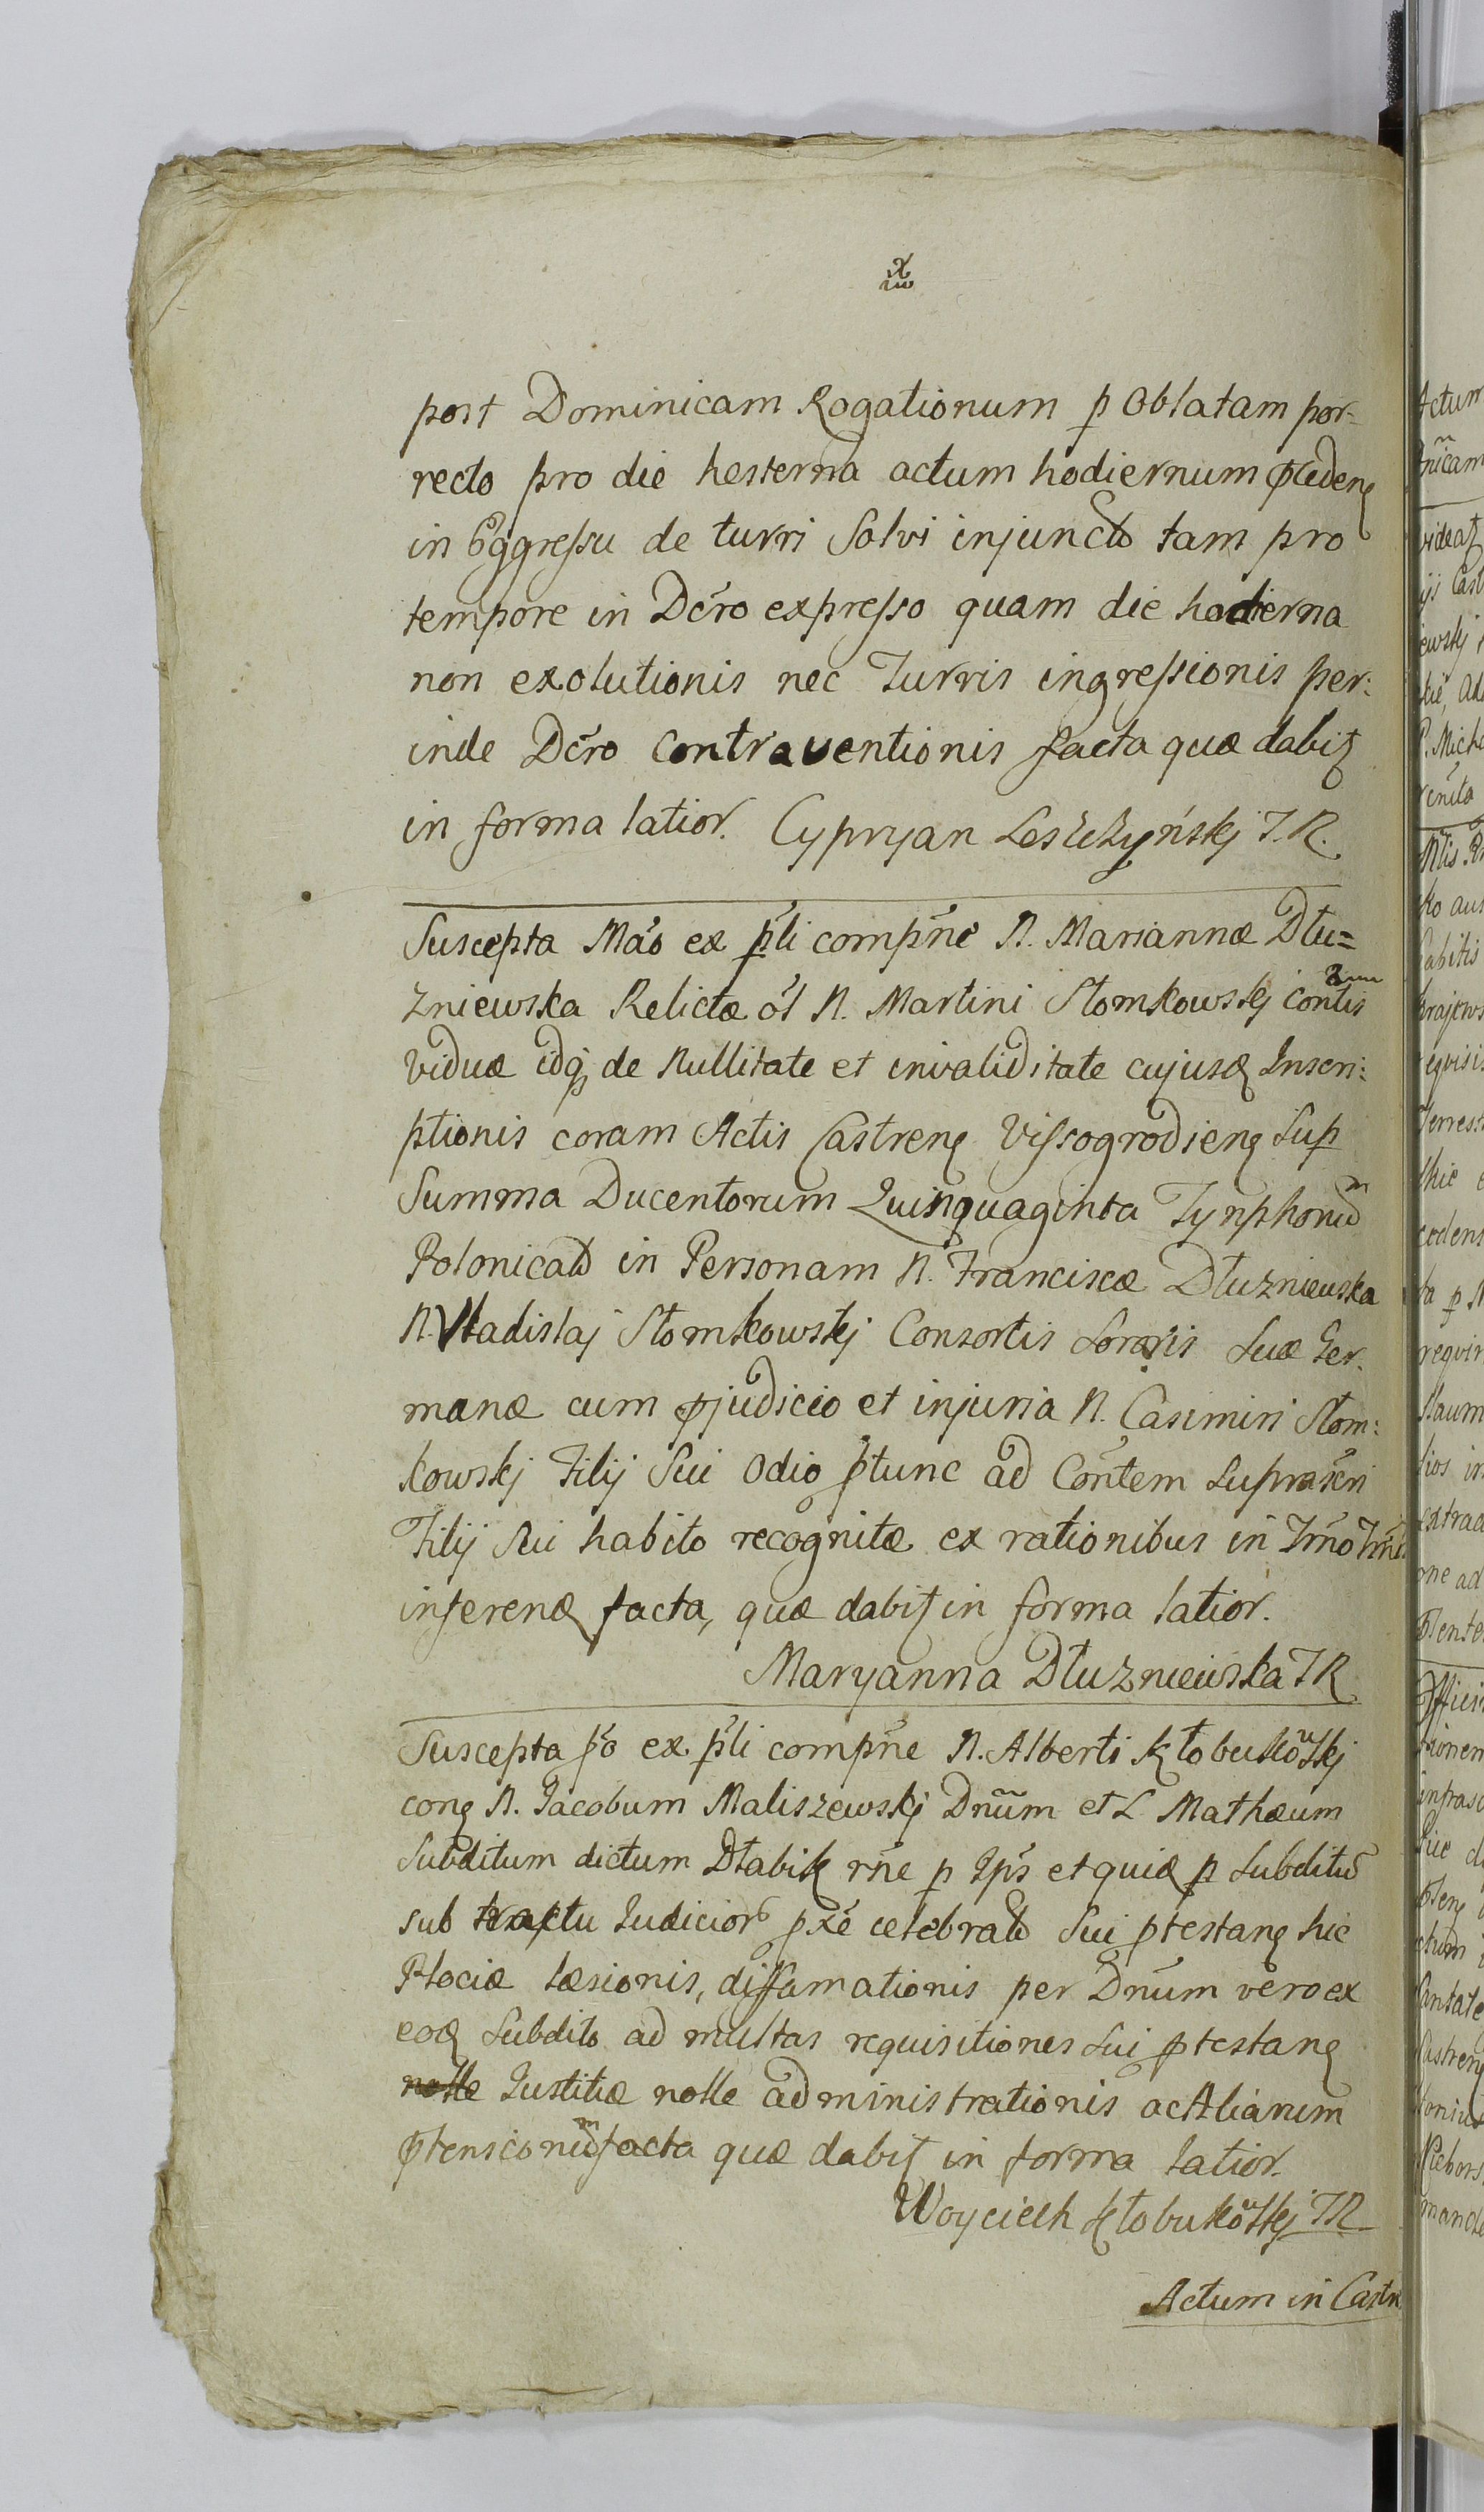 post Dominicam Rogationum p Oblatam por-
recto pro die hesterna actum hodiernum
in Eggressu de turri Solvi injuncto tam pro
tempore in Dcro expresso quam die hodierna
non exolutionis nec Turris ingressionis per:
inde Dcro Contraventionis facta quæ dabit
in forma latior. Cypryan Leszczyńskj T.R.
Suscepta Mão ex pli compne N. Mariannæ Dłu=
zniewska Relictæ ol N. Martini Słomkowskj
Viduæ idq de Nullitate et invaliditate cujusd Inscri:
ptionis coram Actis Castren Vissogrodien Sup
Summa Ducentorum Quinquaginta Tynphonu
Polonical in Personam N. Franciscæ Dłuzniewska
N. Vladislaj Słomkowskj Consortis Sororis Suæ Ger.
manæ cum pjudicio et injuria N. Casimiri Słom:
kowskj Filij Sui Odio ptunc ad Contem Suprascri
Filij Sui habito recognitæ ex rationibus in Trno
inferend facta, quæ dabit in forma latior.
Maryanna Dłuzniewska TR
Suscepta po ex pli compne N. Alberti Kłobukowskj
con N. Jacobum Maliszewskj Dnum et L Mathæum
Subditum dictum Dłabik rne p Ips et quid p Subditu
sub tractu Iudicior pxe celebrato Sui ptestan hic
Plociæ læsionis, diffamationis per Dnum vero ex
eod Subdito ad multas requisitiones Sui ptestan
nolle Iustitiæ nolle administrationis ac Aliarum
ptensionu facta quæ dabit in forma latior.
Woyciech Kłobukowskj TR
Actum in Castr